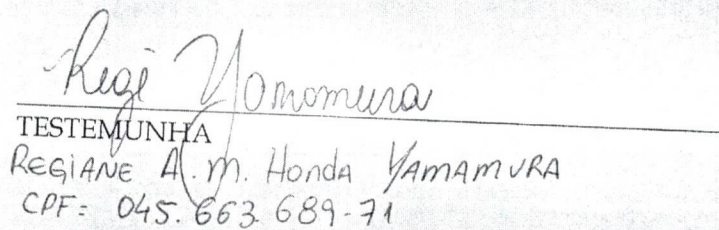 Regi Yamamura
TESTEMUNHA
REGIANE A. M. Honda YAMAMURA
CPF: 045.663.689-71